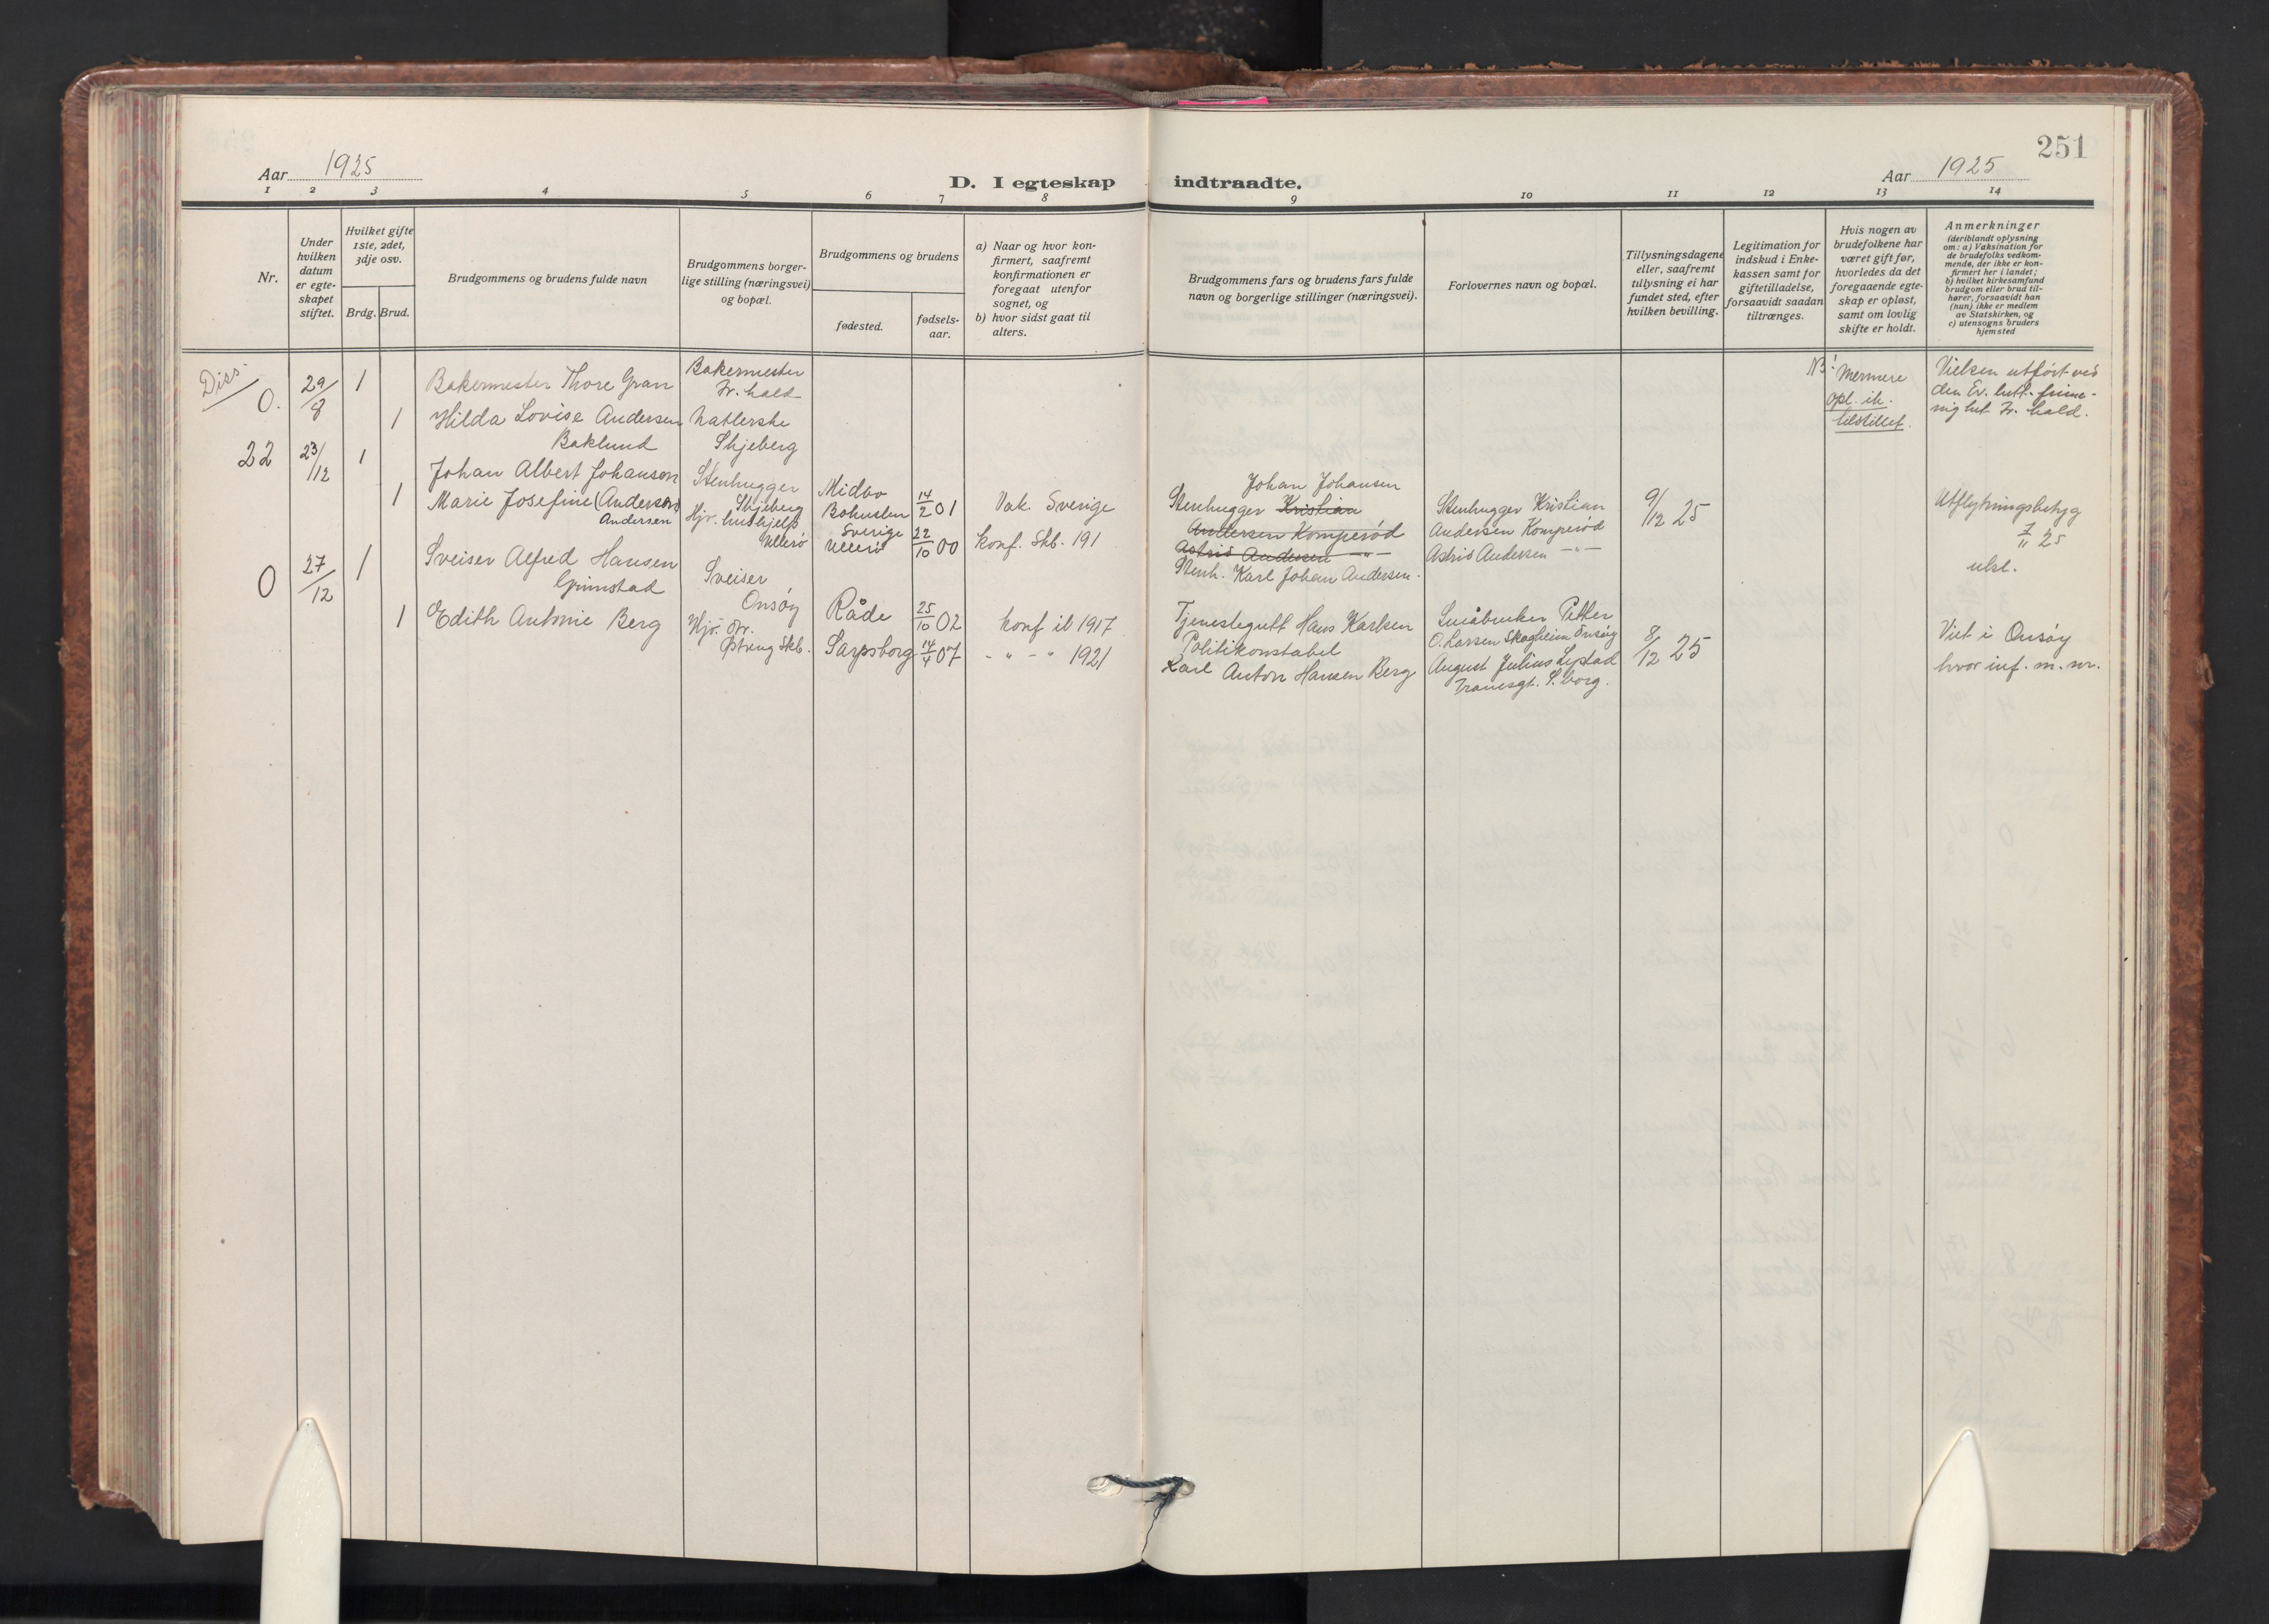 251
Aar 1925
D. I egteskap indtraadte.
Aar 1925
1 2 3 4 5 6 7 8 9 10 11 12 13 14
Nr.
Under
hvilken
datum
er egte-
skapet
stiftet.
Hvilket gifte
1ste, 2det,
3dje osv.
Brdg. Brud.
Brudgommens og brudens fulde navn
Brudgommens borger-
lige stilling (næringsvei)
og bopæl.
Brudgommens og brudens
fødested.
fødsels-
aar.
a) Naar og hvor kon-
firmert, saafremt
konfirmationen er
foregaat utenfor
sognet, og
b) hvor sidst gaat til
alters.
Brudgommens fars og brudens fars fulde
navn og borgerlige stillinger (næringsvei).
Forlovernes navn og bopæl.
Tillysningsdagene
eller, saafremt
tillysning ei har
fundet sted, efter
hvilken bevilling.
Legitimation for
indskud i Enke-
kassen samt for
giftetilladelse,
forsaavidt saadan
tiltrænges.
Hvis nogen av
brudefolkene har
været gift før,
hvorledes da det
foregaaende egte-
skap er opløst,
samt om lovlig
skifte er holdt.
Anmerkninger
(deriblandt oplysning
om: a) Vaksination for
de brudefolks vedkom-
mende, der ikke er kon-
firmert her i landet;
b) hvilket kirkesamfund
brudgom eller brud til-
hører, forsaavidt han
(hun) ikke er medlem
av Statskirken, og
c) utensogns bruders
hjemsted
Diss.
0.
29/8
1
Bakermester Thore Gran
Bakermester
Fr.hald
1
Hilda Lovise Andersen
Baklund
Skjeberg
NB!
Mermere
opl. ik.
tilstillet.
Vielsen utført ved
den Ev. luth. frime-
nighet Fr. hald.
22
23/12
1
Johan Albert Johanson
Stenhugger
Skjeberg
Bohuslen
Sverige
14/2 01
Vak. Sverige
Johan Johansen
Stenhugger Kristian
Andersen Komperød
Stenhugger Kristian
Andersen Komperød
9/12 25
Utflytningsbetyg
7/11 25
1
Marie Josefine (Anderson)
Andersen
Hjv. hushjelp
Ullerø
Ullerø
22/10 00
konf. Skb. 191
Astrid Andersen -"-
Stenh. Karl Johan Andersen.
Astrid Andersen -"-
0
27/12
1
Sveiser Alfred Hansen
Grimstad
Sveiser
Onsøy
Råde
25/10 02
konf ib 1917
Tjenestegutt Hans Karlsen
Småbruker Petter
O. Larsen Skogheim Onsøy
8/12 25
Viet i Onsøy
hvor inf. m. nr.
1
Edith Antonie Berg
Skb.
Sarpsborg
14/4 07
- " - " 1921
Politikonstabel
Karl Anton Hansen Berg
August Julius
S. borg.